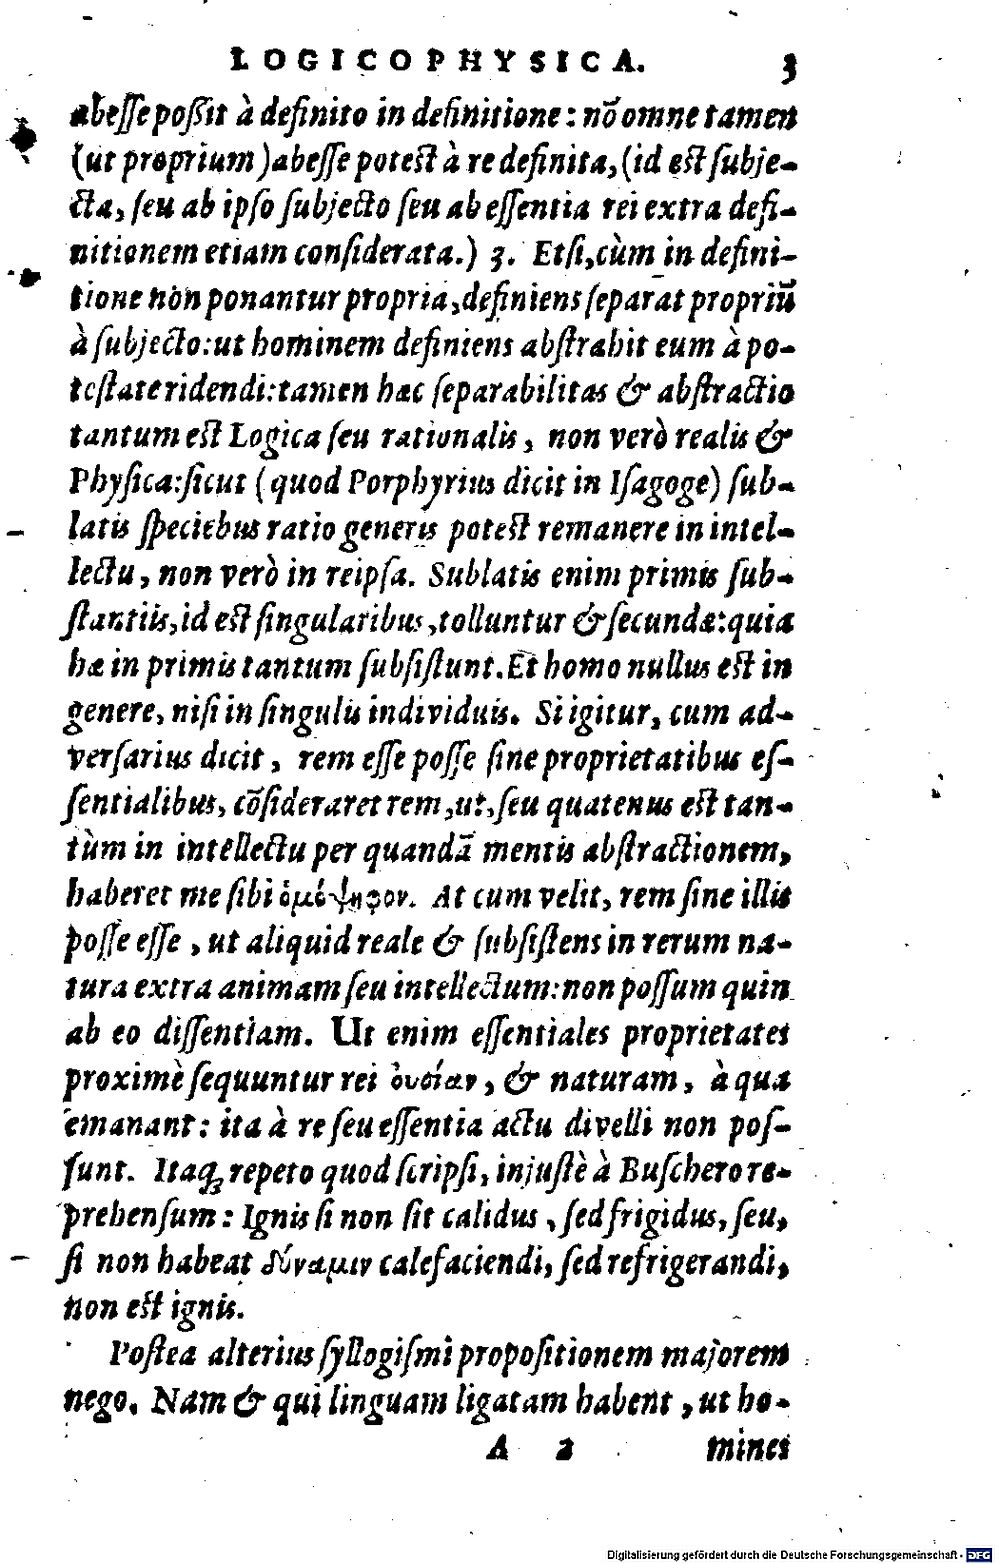 LOGICOPHYSICA. 3
abeſſe poßit à definito in definitione: nō omne tamen
(ut proprium) abeſſe poteſt à re definita, (id eſt ſubje-
cta, ſeu ab ipſo ſubjecto ſeu ab eſſentia rei extra defi-
nitionem etiam conſiderata.) 3. Etſi, cùm in defini-
tione non ponantur propria, definiens ſeparat propriū
à ſubjecto: ut hominem definiens abſtrahit eum à po-
teſtate ridendi: tamen hæc ſeparabilitas & abſtractio
tantum eſt Logica ſeu rationalis, non verò realis &
Phyſica: ſicut (quod Porphyrius dicit in Iſagoge) ſub-
latis ſpeciebus ratio generis poteſt remanere in intel-
lectu, non verò in reipſa. Sublatis enim primis ſub-
ſtantiis, id eſt ſingularibus, tolluntur & ſecundæ: quia
hæ in primis tantum ſubſiſtunt. Et homo nullus eſt in
genere, niſi in ſingulis individuis. Si igitur, cum ad-
verſarius dicit, rem eſſe poſſe ſine proprietatibus eſ-
ſentialibus, cōſideraret rem, ut, ſeu quatenus eſt tan-
tùm in intellectu per quandā mentis abſtractionem,
haberet me ſibi ὁμόψηφον. At cum velit, rem ſine illis
poſſe eſſe, ut aliquid reale & ſubſiſtens in rerum na-
tura extra animam ſeu intellectum: non poſſum quin
ab eo diſſentiam. Ut enim eſſentiales proprietates
proximè ſequuntur rei ὀυσίαν, & naturam, à qua
emanant: ita à re ſeu eſſentia actu divelli non poſ-
ſunt. Itaq; repeto quod ſcripſi, injuſtè à Buſchero re-
prehenſum: Ignis ſi non ſit calidus, ſed frigidus, ſeu,
ſi non habeat δύναμιν calefaciendi, ſed refrigerandi,
non eſt ignis.
Poſtea alterius ſyllogiſmi propoſitionem majorem
nego. Nam & qui linguam ligatam habent, ut ho-
A 2 mines
Digitalisierung gefördert durch die Deutsche Forschungsgemeinschaft - DFG